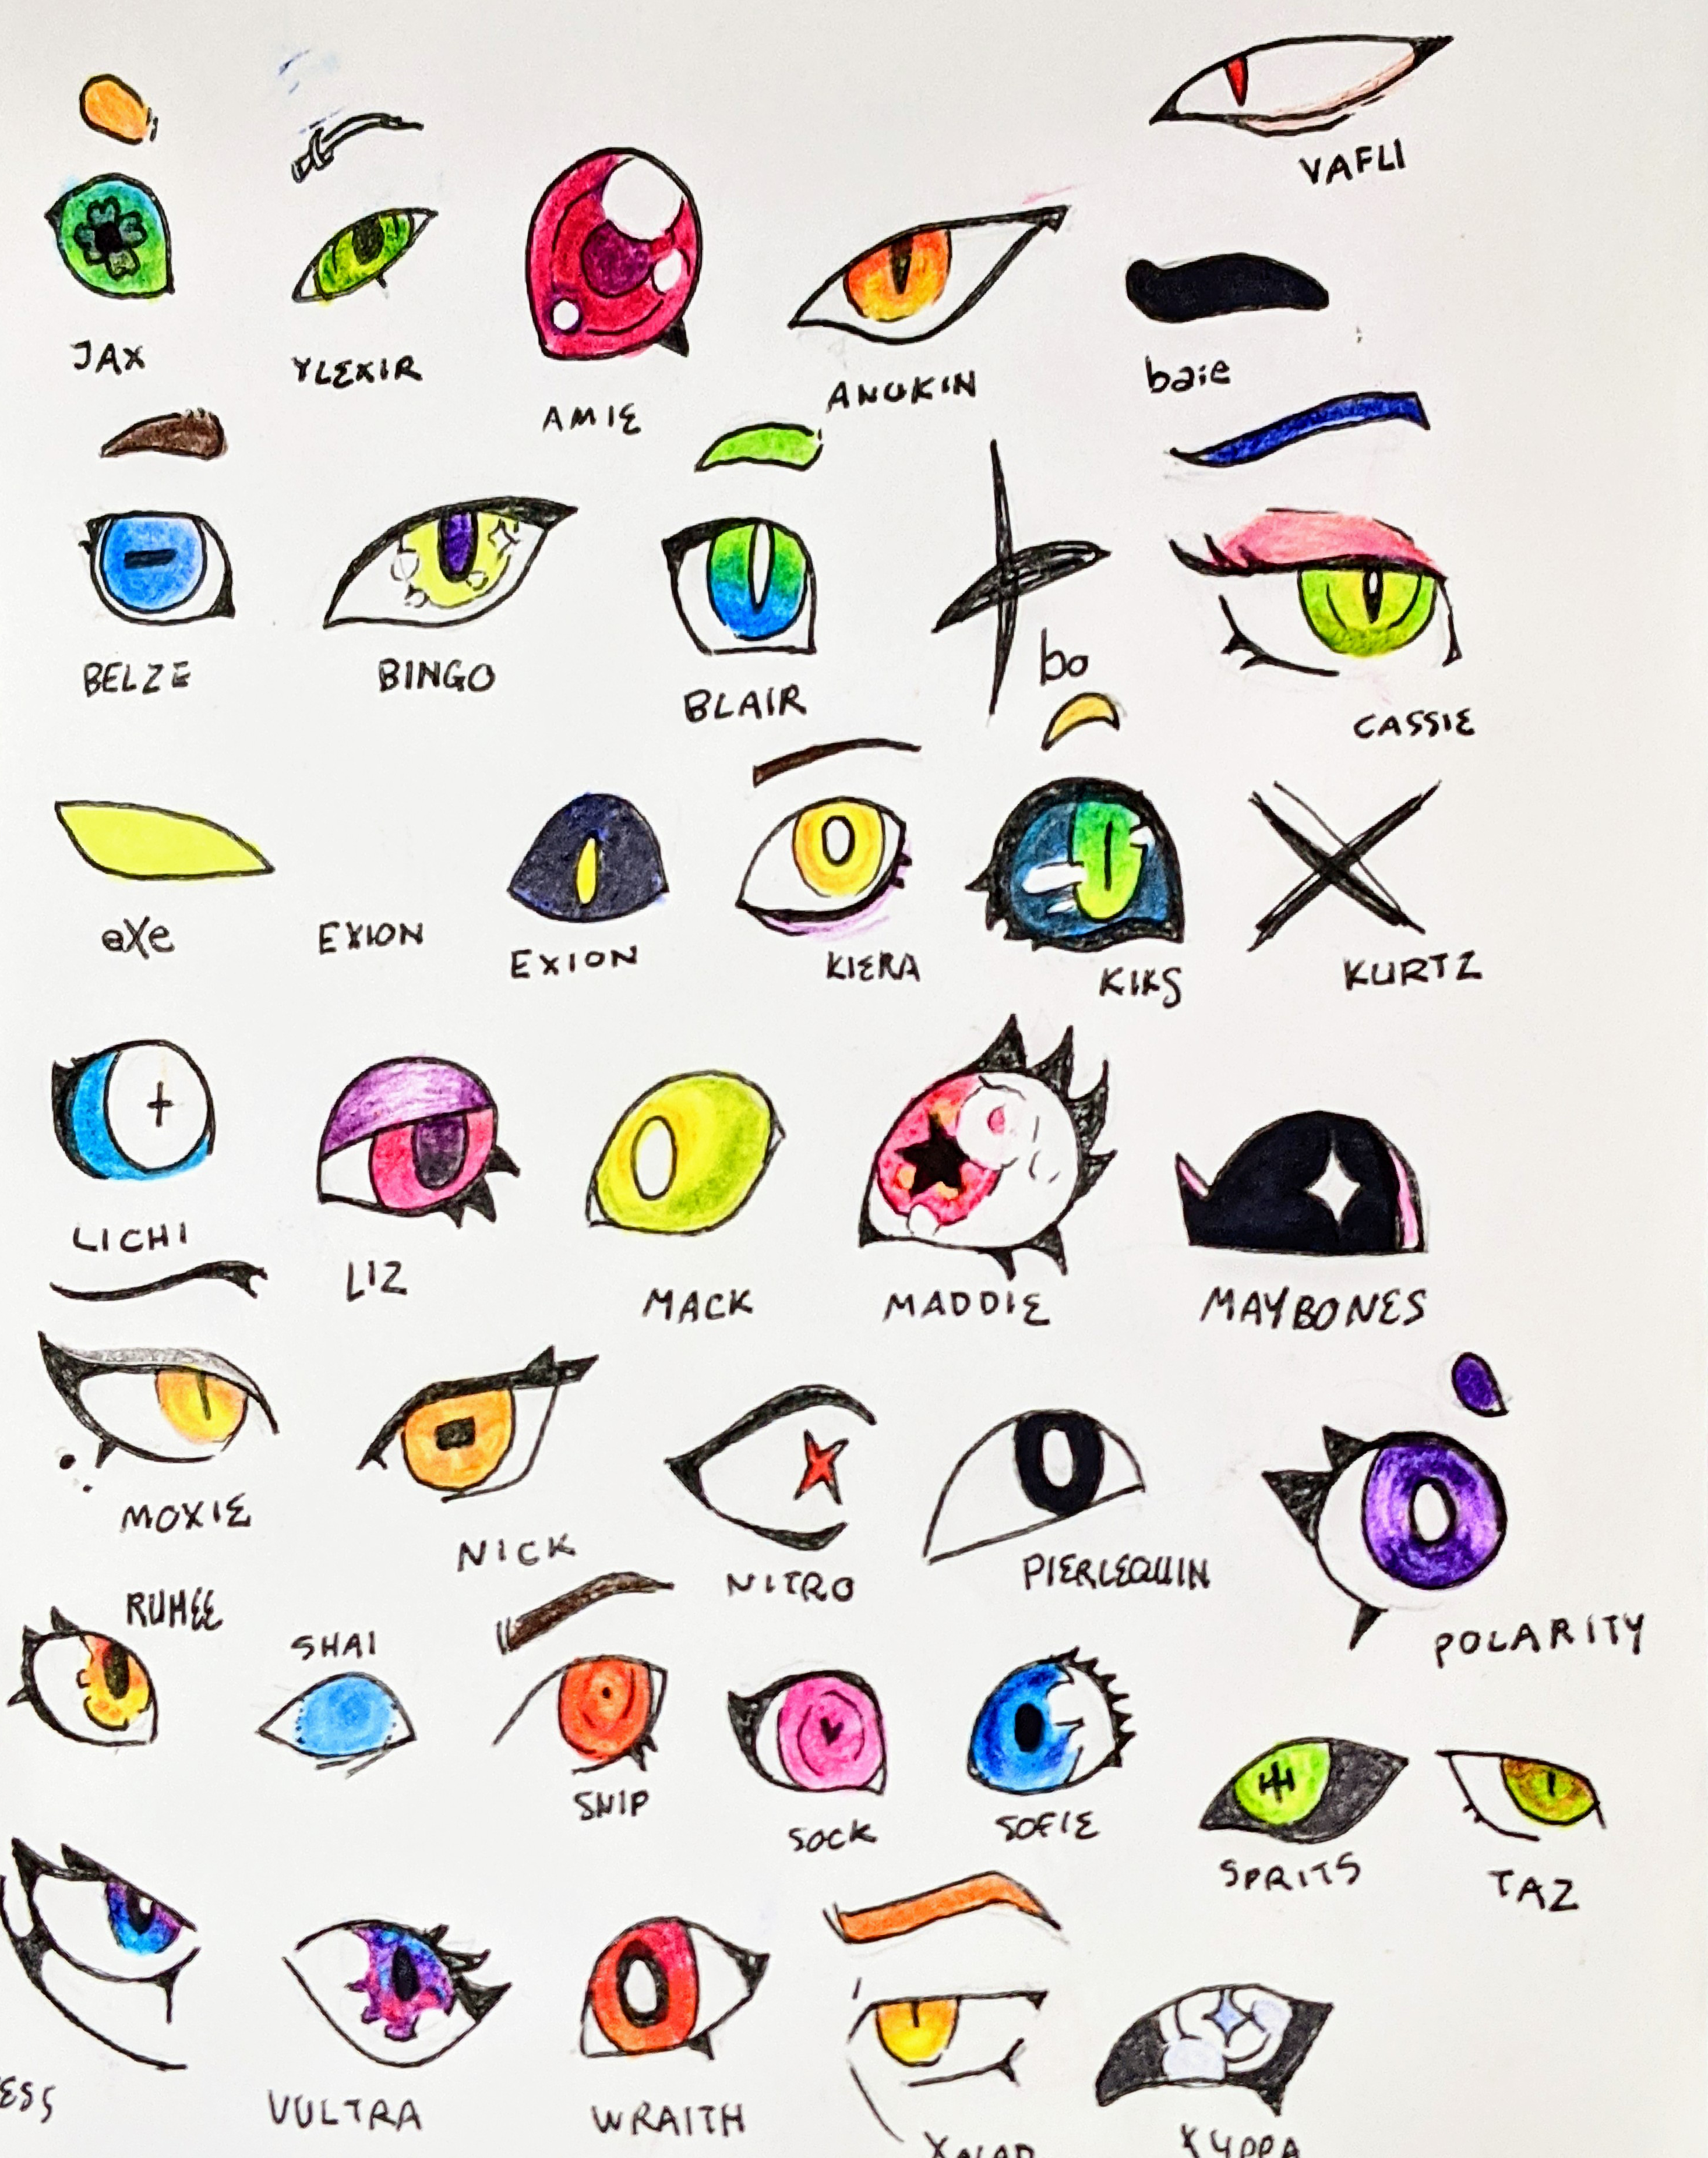 VAFLI
JAX
YLEXIR
AMIE
ANUKIN
baie
BELZE
BINGO
BLAIR
bo
CASSIE
aXe
EXION
EXION
KIERA
KIKS
KURTZ
LICHI
LIZ
MACK
MADDIE
MAYBONES
MOXIE
NICK
NITRO
PIERLEQUIN
POLARITY
RUHEE
SHAI
SNIP
SOCK
SOFIE
SPRITS
TAZ
VULTRA
WRAITH